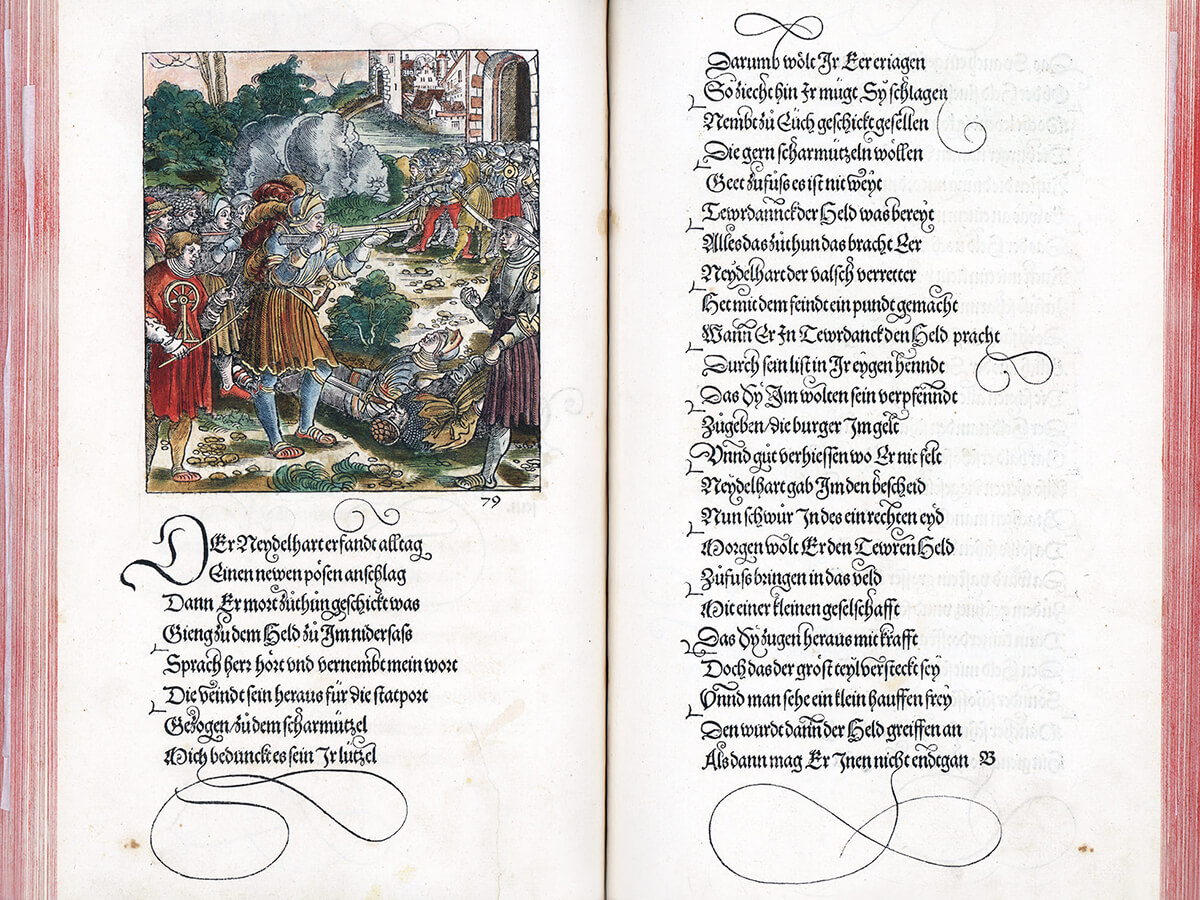 79
DEr Neydelhart erfandt alltag
Einen newen pösen anschlag
Dann Er mort zůthůn geschickt was
Gieng zů dem Held zů Im nidersass
Sprach herr hört vnd vernembt mein wort
Die veindt sein heraus für die statport
Gezogen/zů dem scharmützel
Mich bedunckt es sein Ir lützel
Darumb wölt Ir Eer eriagen
So ziecht hin Ir mügt Sy schlagen
Nembt zů Eüch geschickt gesellen
Die gern scharmützeln wöllen
Geet zůfůss es ist nit weyt
Tewrdannck der Held was bereyt
Alles das zůthun das bracht Eer
Neydelhart der valsch verretter
Het mit dem feindt ein pundt gemacht
Wann Er In Tewrdanck den Held pracht
Durch sein list in Ir eygen hendt
Das Sy Im wolten sein verpfenndt
Zůgebn/die burger Im gelt
Vnnd gůt verhiessen wo Er nit felt
Neydelhart gab Im den bescheid
Nun schwůr In des ein rechten eyd
Morgen wolt Er den Tewren Held
Zůfůss bringen in das veld
Mit einer kleinen geselschafft
Das Sy zugen heraus mit krafft
Doch das der gröst teyl versteckt sey
Vnnd man sehe ein klein hauffen frey
Den wurdt dann der Held greiffen an
Als dann mag Er Inen nicht endtgan B